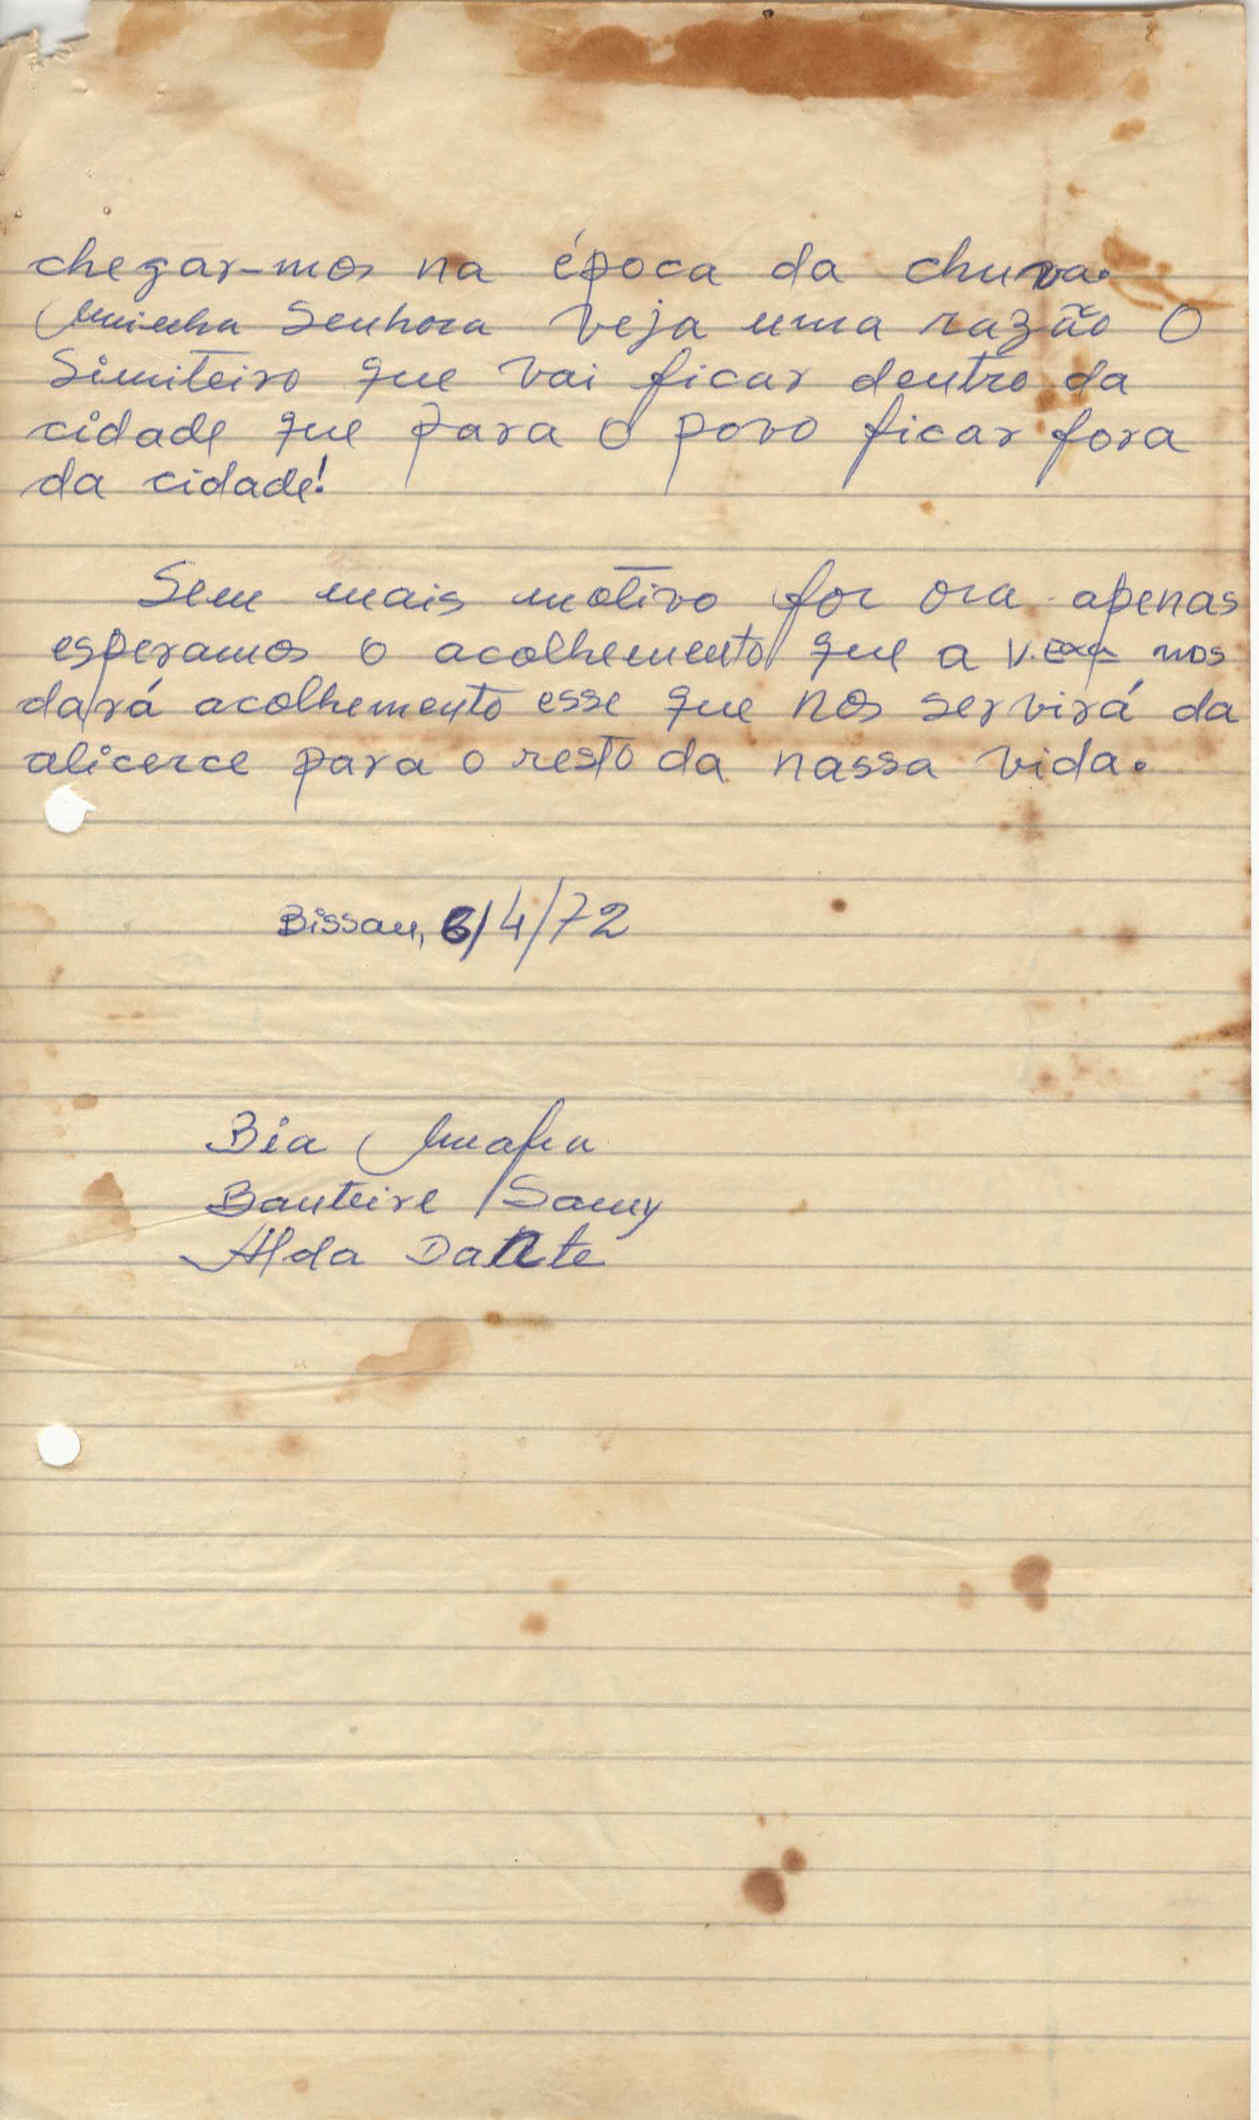 chegar-mos na época da chuva.
Minha Senhora veja uma razão O
Simiteiro que vai ficar dentro da
cidade que para o povo ficar fora
da cidade!
Sem mais motivo por ora apenas
esperamos o acolhemento que a V. Exa nos
dará acolhemento esse que nos servirá da
alicerce para o resto da nassa vida.
Bissau, 6/4/72
Bia Mafu
Bauteire Samy
Alda Dante